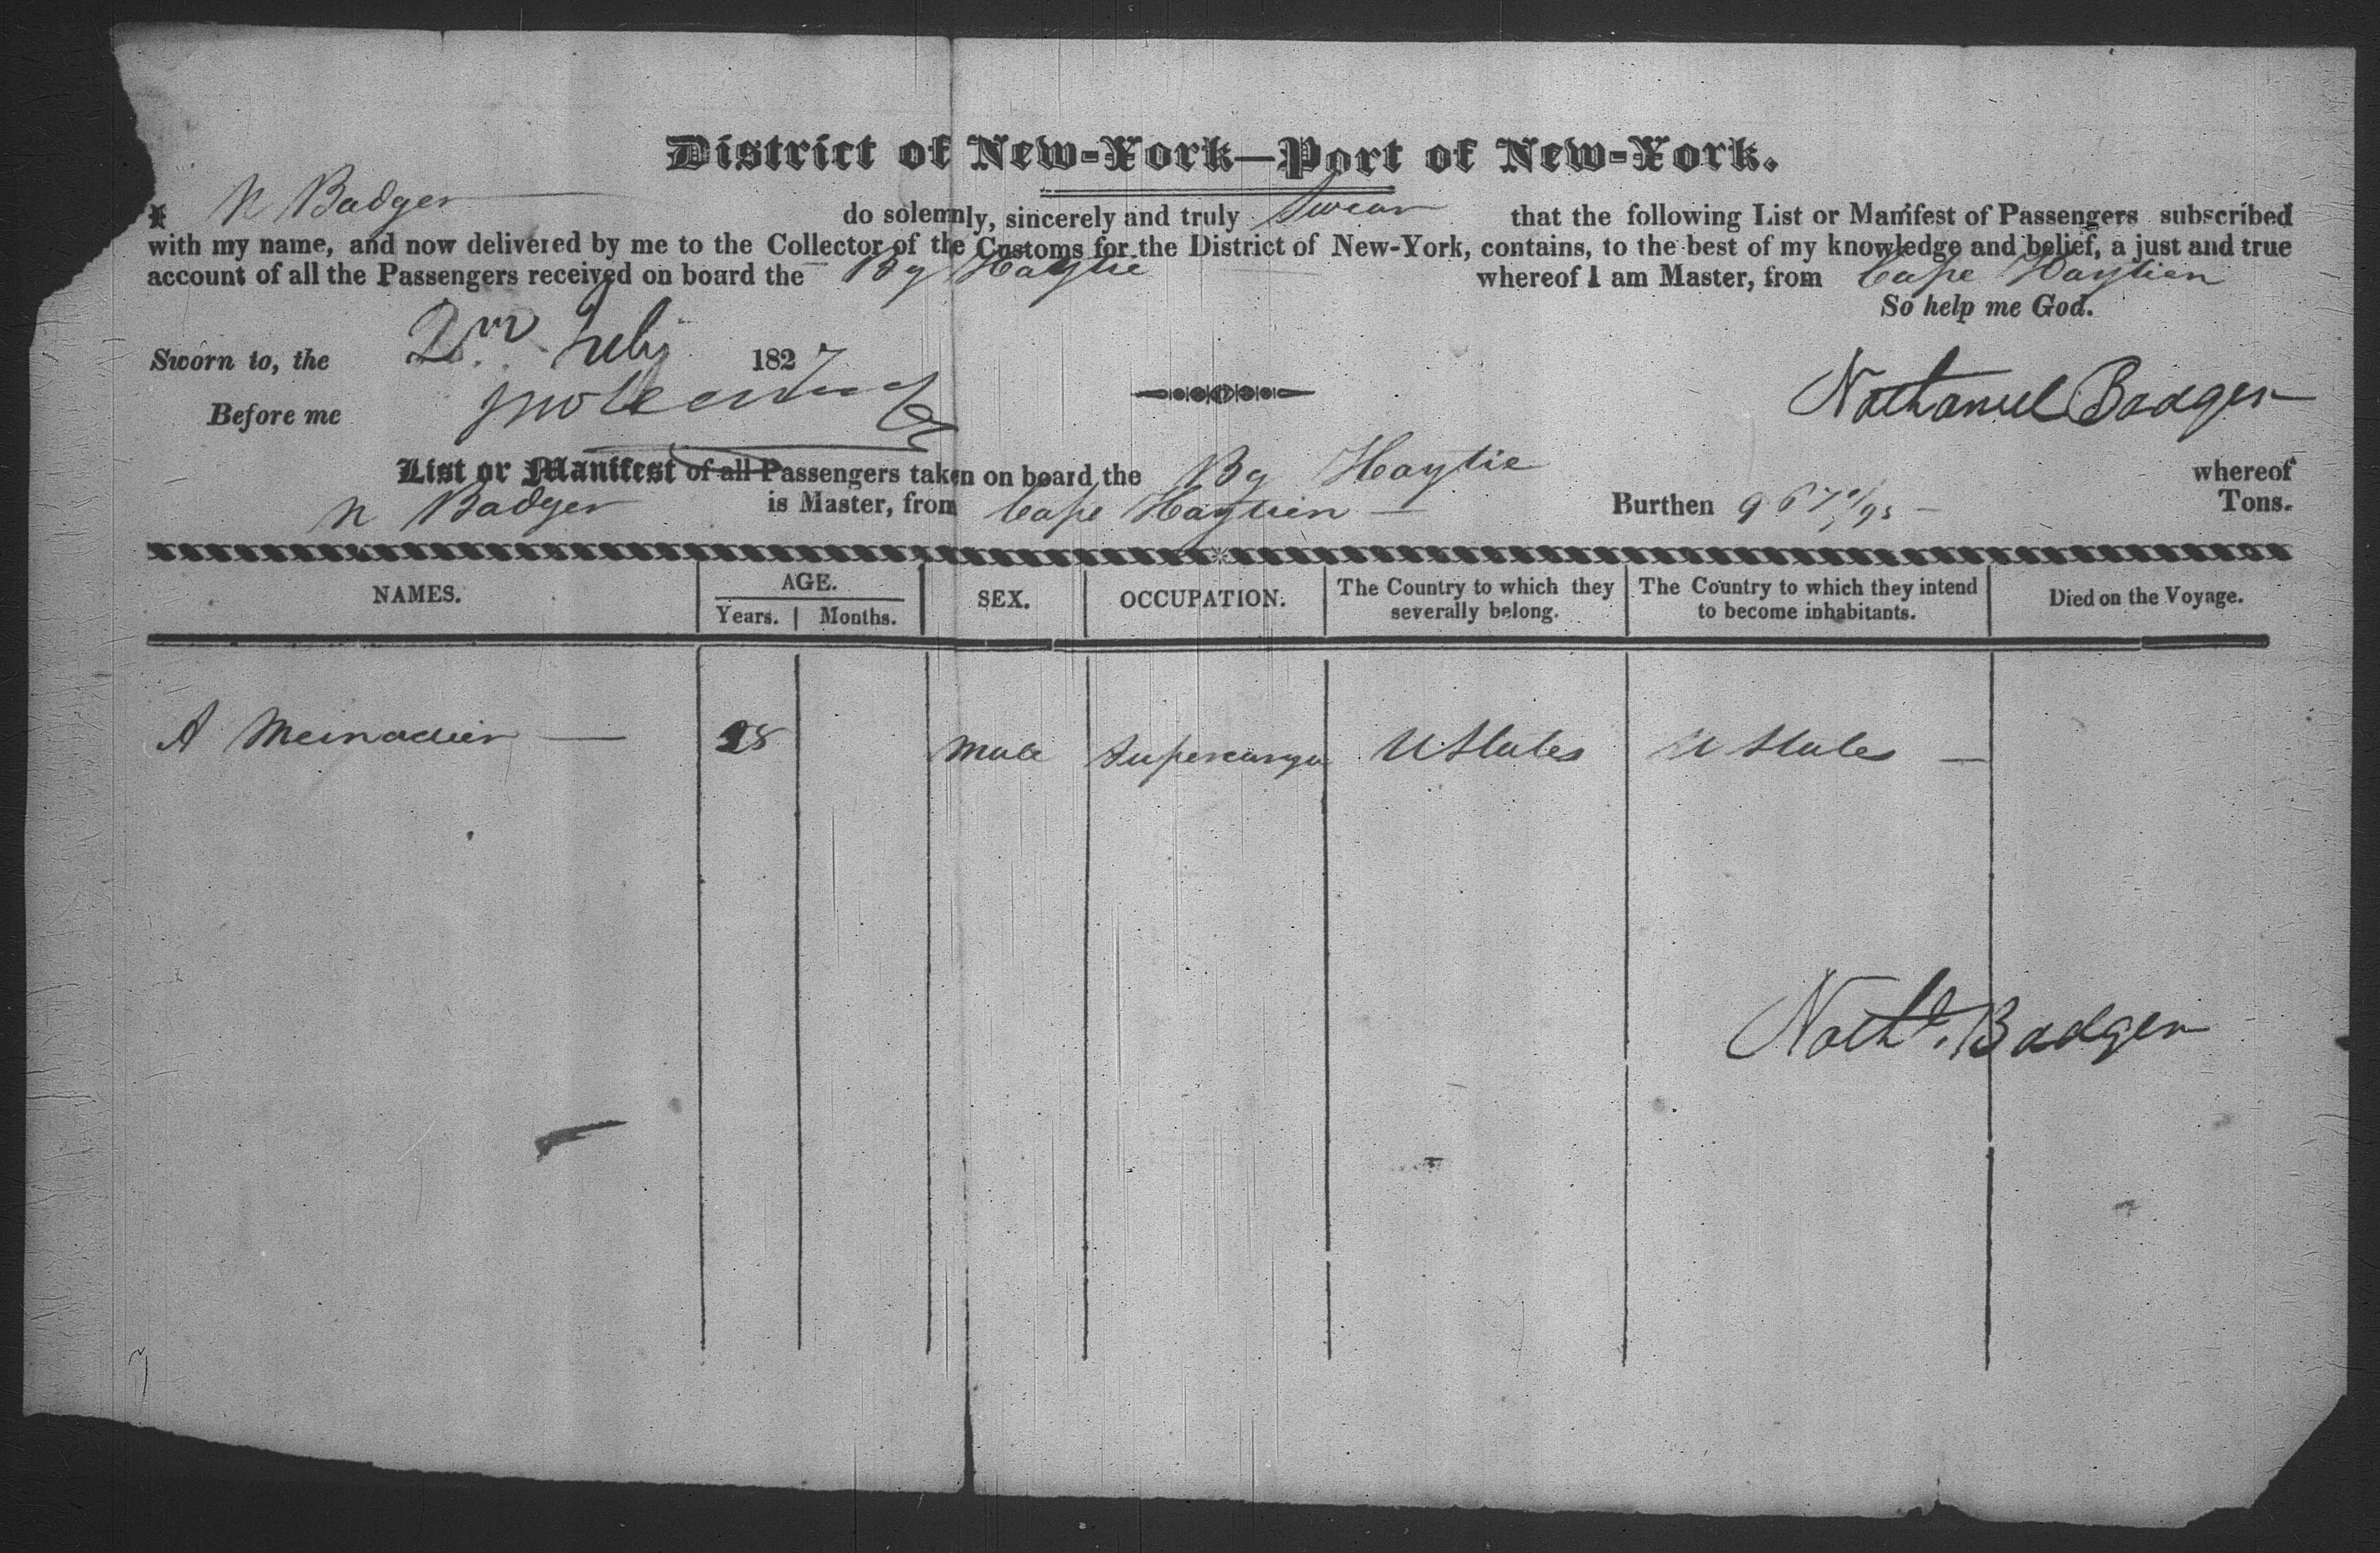 District of New-York—Port of New-York.
I N Badger do solemnly, sincerely and truly Swear that the following List or Manifest of Passengers subscribed
with my name, and now delivered by me to the Collector of the Customs for the District of New-York, contains, to the best of my knowledge and belief, a just and true
account of all the Passengers received on board the Bg Haytie whereof I am Master, from Cape Haytien
So help me God.
Sworn to, the 2nd July 1827
Before me
Nathaniel Badger
List or Manifest of all Passengers taken on board the Bg Haytie whereof
N Badger is Master, from Cape Haytien — Burthen Tons.
NAMES. AGE. SEX. OCCUPATION. The Country to which they severally belong. The Country to which they intend to become inhabitants. Died on the Voyage.
Years. Months.
A Meinadier — 28 Male Supercargo U States U States —
Nathl. Badger